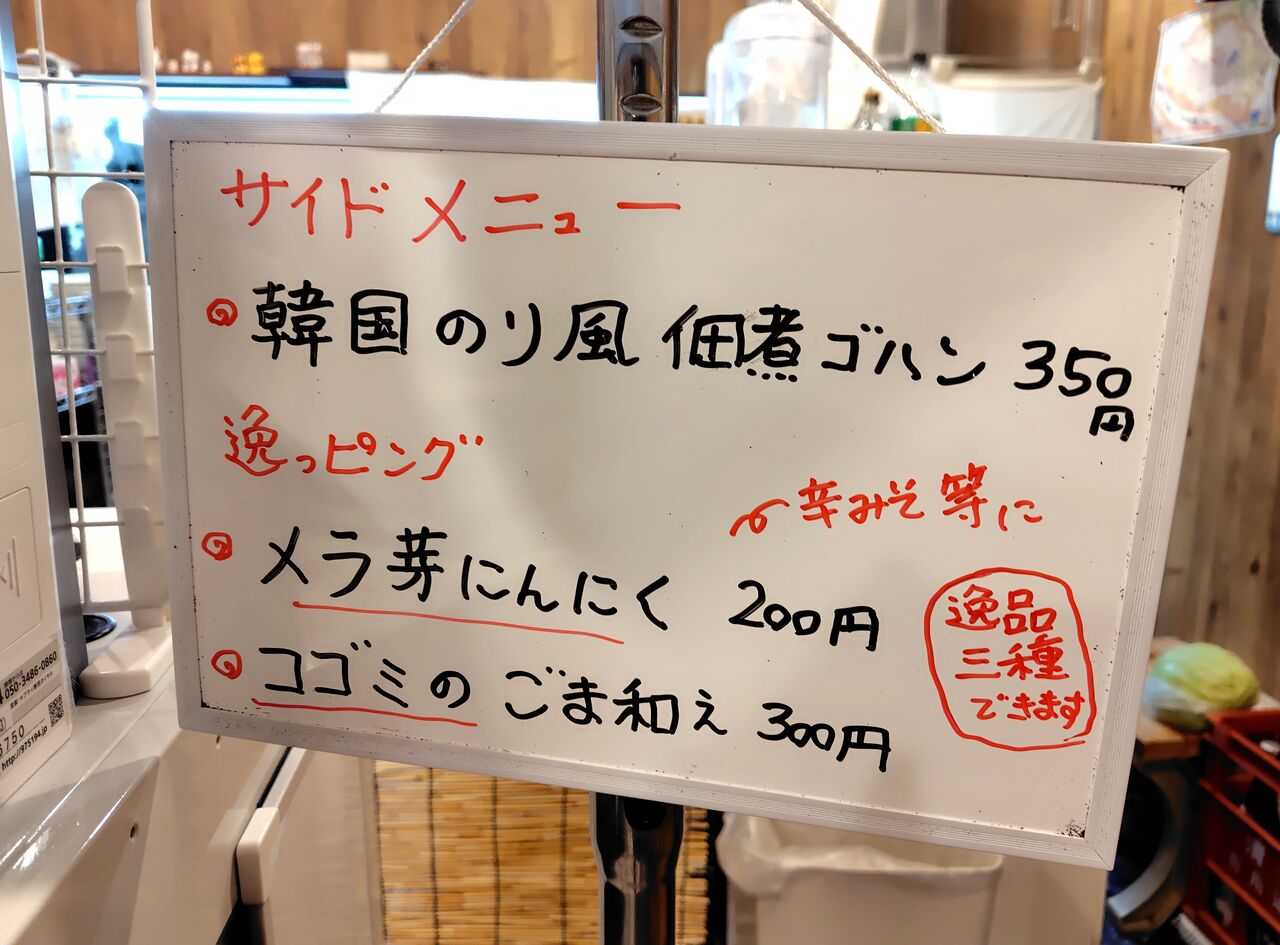 サイドメニュー
韓国のり風 佃煮ゴハン 350円
逸っピング
辛みそ等に
メラ芽にんにく 200円
コゴミの ごま和え 300円
逸品
三種
できます
050-3486-0860
http://975194.jp